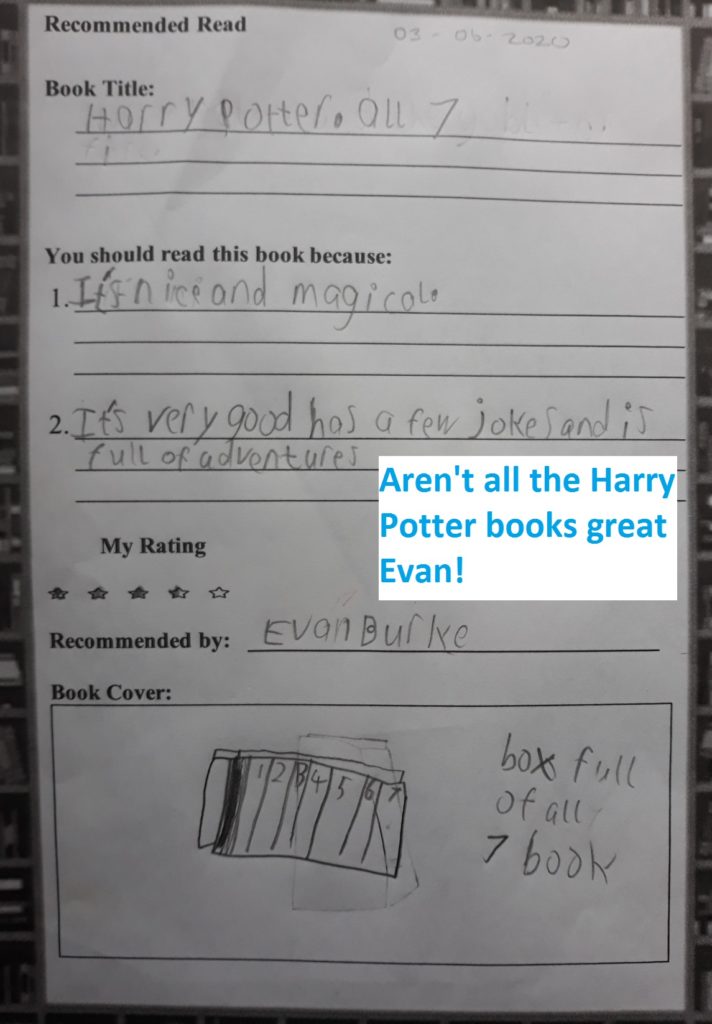 Recommended Read
03-06-2020
Book Title:
Harry Potter. all 7
You should read this book because:
1. It's nice and magical.
2. It's very good has a few jokes and is
full of adventures
Aren't all the Harry
Potter books great
Evan!
My Rating
Recommended by: Evan Burke
Book Cover:
1 2 3 4 5 6 7
box full
of all
7 book